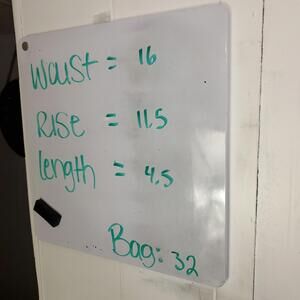 Waist = 16
Rise = 11.5
length = 4.5
Bag: 32